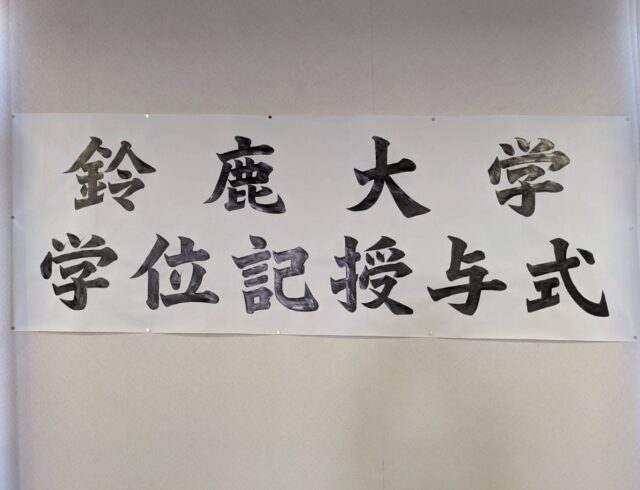 鈴鹿大学
学位記授与式